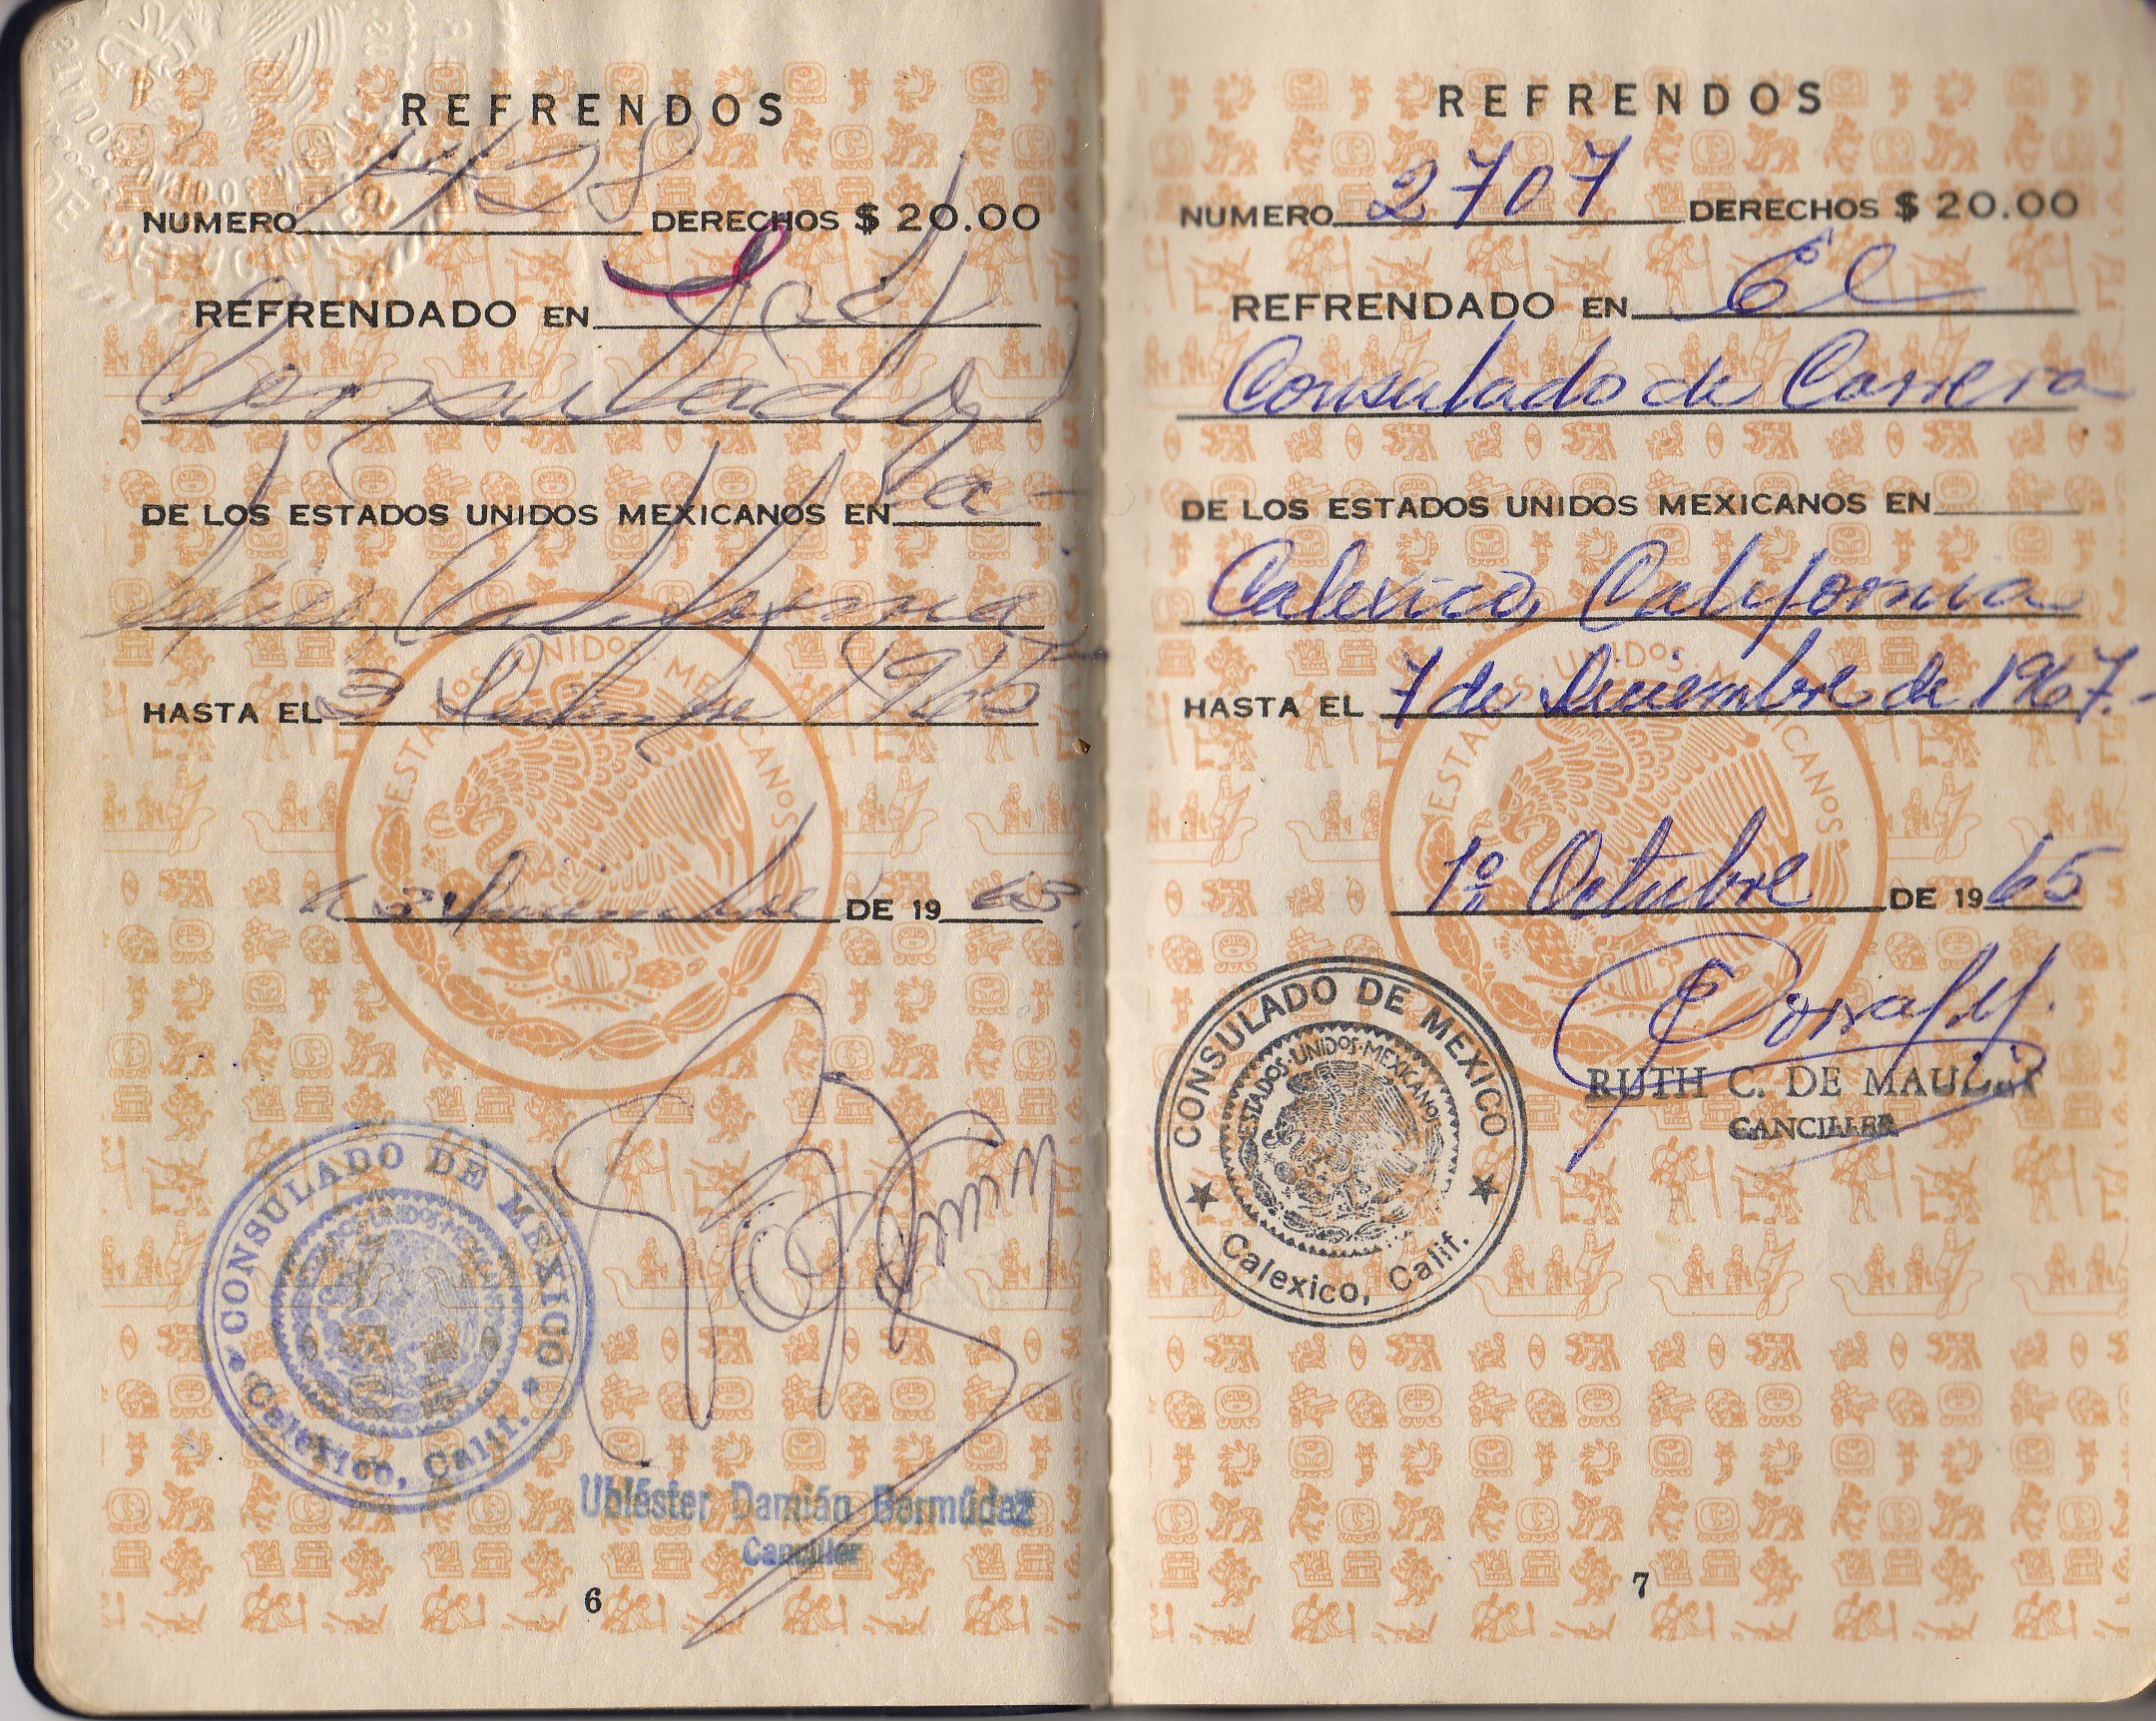 REFRENDOS
NUMERO DERECHOS $ 20.00
REFRENDADO EN
Consulado
DE LOS ESTADOS UNIDOS MEXICANOS EN Ca-
California
HASTA EL 3 1965
DE 19 63
CONSULADO DE MEXICO
ESTADOS UNIDOS MEXICANOS
Calexico, Calif.
Ubléster Damián Bermúdez
Canciller
6
REFRENDOS
NUMERO 2707 DERECHOS $ 20.00
REFRENDADO EN El
Consulado de Carrera
DE LOS ESTADOS UNIDOS MEXICANOS EN
Calexico, California
HASTA EL 7 de Diciembre de 1967.-
1o. Octubre DE 19 65
CONSULADO DE MEXICO
ESTADOS·UNIDOS·MEXICANOS
Calexico, Calif.
RUTH C. DE
CANCILLER
7